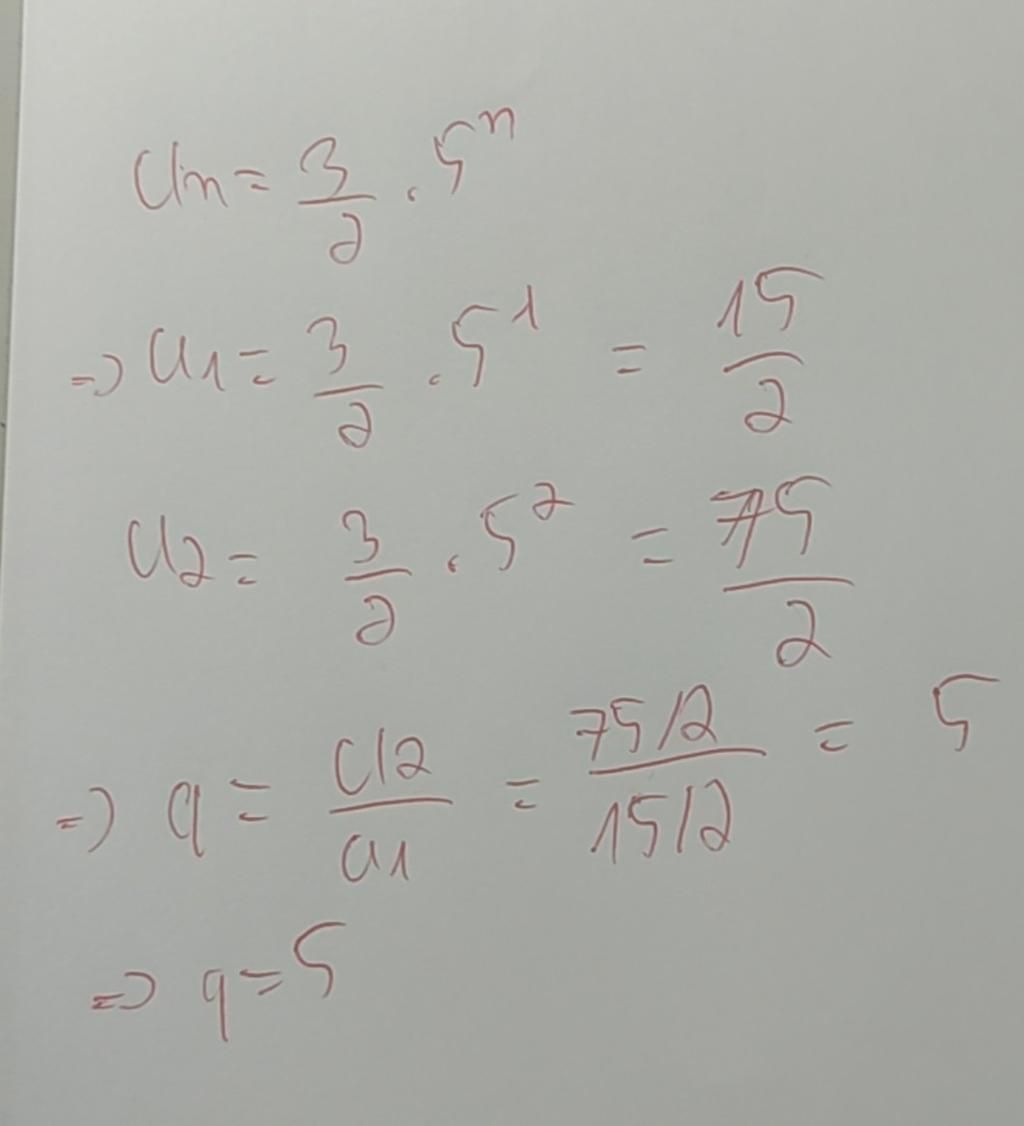 Un = 3/2 . 5^n
=> U1 = 3/2 . 5^1 = 15/2
U2 = 3/2 . 5^2 = 75/2
=> q = U2/U1 = (75/2)/(15/2) = 5
=> q = 5